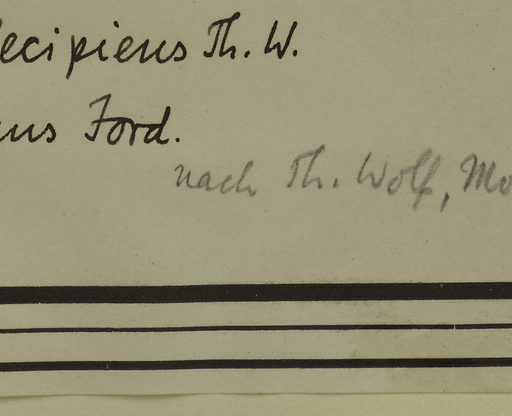 decipiens Th. W.
Ford.
nach Th. Wolf, Mo